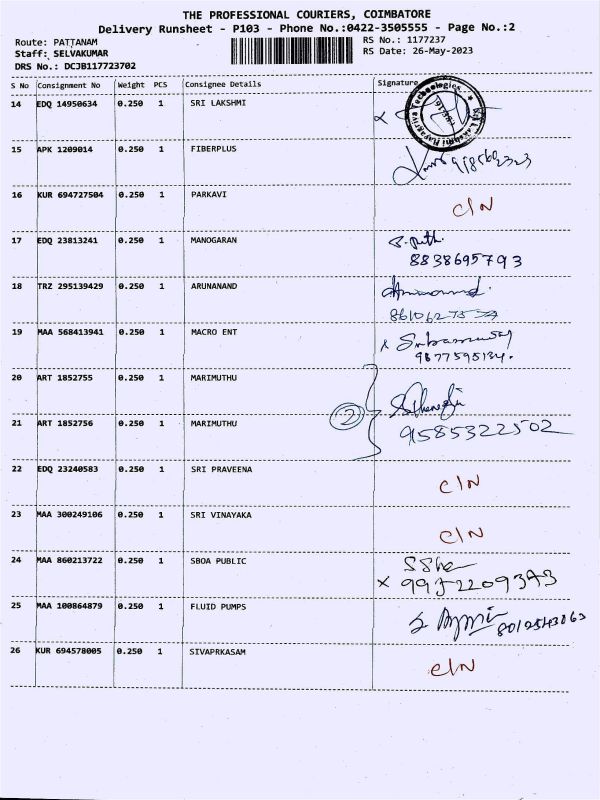 THE PROFESSIONAL COURIERS, COIMBATORE
Delivery Runsheet - P103 - Phone No.:0422-3505555 - Page No.:2
Route: PATTANAM
Staff: SELVAKUMAR
DRS No.: DCJB117723702
RS No.: 1177237
RS Date: 26-May-2023
S No Consignment No Weight PCS Consignee Details Signature
14 EDQ 14950634 0.250 1 SRI LAKSHMI
15 APK 1209014 0.250 1 FIBERPLUS
16 KUR 694727504 0.250 1 PARKAVI C/N
17 EDQ 23813241 0.250 1 MANOGARAN
8838695793
18 TRZ 295139429 0.250 1 ARUNANAND
19 MAA 568413941 0.250 1 MACRO ENT
9877595134.
20 ART 1852755 0.250 1 MARIMUTHU
2
21 ART 1852756 0.250 1 MARIMUTHU 91585322502
22 EDQ 23240583 0.250 1 SRI PRAVEENA C/N
23 MAA 300249106 0.250 1 SRI VINAYAKA C/N
24 MAA 860213722 0.250 1 SBOA PUBLIC
25 MAA 100864879 0.250 1 FLUID PUMPS
26 KUR 694578005 0.250 1 SIVAPRKASAM C/N